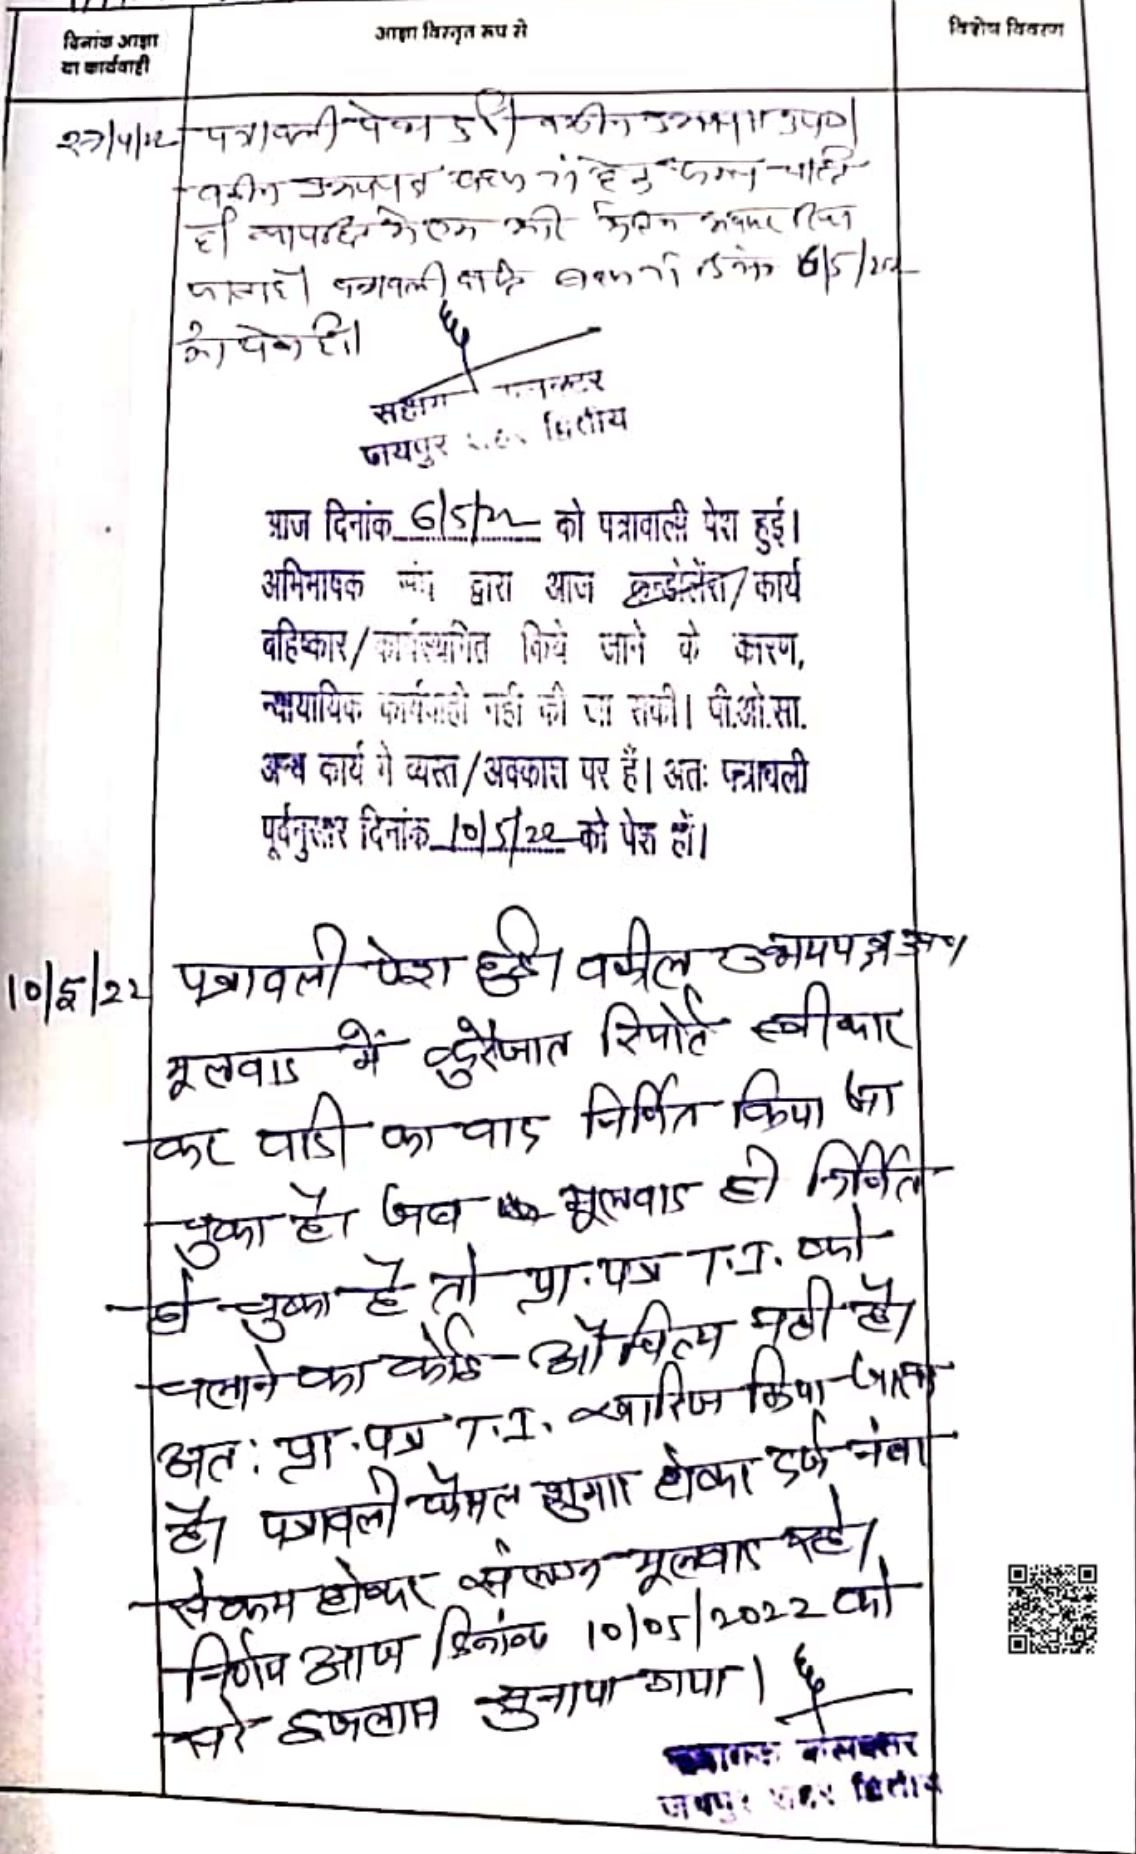 दिनांक आज्ञा
या कार्यवाही
आज्ञा विस्तृत रूप से
विशेष विवरण
27/4/22 पत्रावली पेश हुई। वकील उभयपक्ष उप०।
वकील उभयपक्ष बहस हेतु समय चाहते
है।
जाता है। पत्रावली वास्ते बहस दिनांक 6/5/22
को पेश हो।
सहायक कलक्टर
जयपुर शहर द्वितीय
आज दिनांक 6/5/22 को पत्रावली पेश हुई।
अभिभाषक संघ द्वारा आज कन्डोलेंस/कार्य
बहिष्कार/कार्यस्थगित किये जाने के कारण,
न्यायायिक कार्यवाही नहीं की जा सकी। पी.ओ.सा.
अन्य कार्य में व्यस्त/अवकाश पर हैं। अतः पत्रावली
पूर्वनुसार दिनांक 10/5/22 को पेश हों।
10/5/22 पत्रावली पेश हुई। वकील उभयपक्ष उप०।
मूलवाद में कुर्रेजात रिपोर्ट स्वीकार
कर वादी का वाद निर्णित किया जा
चुका है। जब मूलवाद ही निर्णित
हो चुका है तो प्रा.पत्र T.I. को
चलाने का कोई औचित्य नही है।
अत: प्रा.पत्र T.I. खारिज किया जाता
है। पत्रावली फैसल शुमार होकर दर्ज नंबर
से कम होकर संलग्न मूलवाद रहे।
निर्णय आज दिनांक 10/05/2022 को
सरे इजलास सुनाया गया।
सहायक कलक्टर
जयपुर शहर द्वितीय